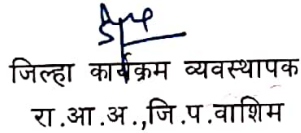 जिल्हा कार्यक्रम व्यवस्थापक
रा.आ.अ.,जि.प.वाशिम